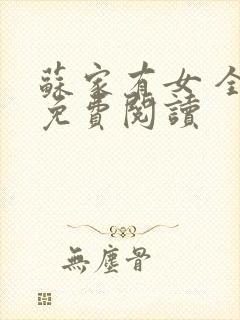 蘇家有女全
免費閱讀
無塵骨